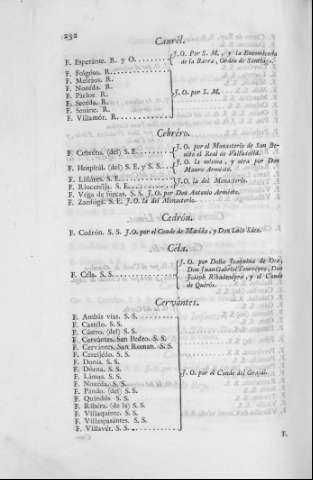 232
Caurél.
F. Esperánte. R. y O. . . . . . . . J. O. Por S. M., y la Encomienda de la Barra, Orden de Santiago.
F. Folgóso. R.
F. Meiráos. R.
F. Noceda. R.
F. R.
F. Seoáda. R.
F. R.
F. Villamór. R.
J. O. por S. M.
Cebréro.
F. Cebréro. (del) S. E. . . . J. O. por el Monasterio de San Benito el Real de Valladolid.
F. Hospitál. (del) S. E. y S. S. . . . J. O. la misma, y otra por Don Mauro Armésto.
F. Liñáres. S. E.
F. Riocereija. S. E.
J. O. la del Monasterio.
F. Véga de forcas. S. S. J. O. por Don Antonio Armésto.
F. Zanfoga. S. E. J. O. la del Monasterio.
Cedrón.
F. Cedrón. S. S. J. O. por el Conde de , y Don Luis Sáez.
Céla.
F. Céla. S. S. . . . . J. O. por Doña Joaquina de Oca, Don Juan Gabriel Tenreyro, Don Joseph Ribadeneyra, y el Conde de Quirós.
Cervántes.
F. Ambás vias. S. S.
F. Castélo. S. S.
F. Cástro. (del) S. S.
F. Cervántes. San Pedro. S. S.
F. Cervántes. San Roman. S. S.
F. Cereijédo. S. S.
F. Donís. S. S.
F. Dórna. S. S.
F. Lámas. S. S.
F. Nocéda. S. S.
F. Pándo. (del) S. S.
F. Quindós. S. S.
F. Ribéra. (de la) S. S.
F. Villaquínte. S. S.
F. Villaspasántes. S. S.
F. Villavér. S. S.
J. O. por el Conde del Grajál.
F.